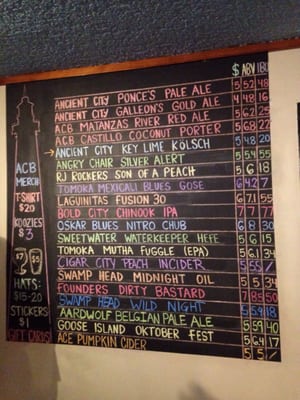 $ ABV IBU
ANCIENT CITY PONCE'S PALE ALE 5 5.2 48
ANCIENT CITY GALLEON'S GOLD ALE 4 4.8 16
ACB MATANZAS RIVER RED ALE 5 6.2 25
ACB CASTILLO COCONUT PORTER 5 6.8 27
ANCIENT CITY KEY LIME KÖLSCH 5 4.8 20
ANGRY CHAIR SILVER ALERT 5 5.4 55
RJ ROCKERS SON OF A PEACH 5 6 18
TOMOKA MEXICALI BLUES GOSE 6 4.2 7
LAGUINITAS FUSION 30 6 7.1 55
BOLD CITY CHINOOK IPA 7 7 77
OSKAR BLUES NITRO CHUB 6 8 30
SWEETWATER WATERKEEPER HEFE 5 6 15
TOMOKA MUTHA FUGGLE (EPA) 5 6.1 34
CIGAR CITY PEACH INCIDER 5 5.5 /
SWAMP HEAD MIDNIGHT OIL 5 5 34
FOUNDERS DIRTY BASTARD 7 8.5 50
SWAMP HEAD WILD NIGHT 5 5.9 18
AARDWOLF BELGIAN PALE ALE 5 5.9 40
GOOSE ISLAND OKTOBER FEST 5 6.4 17
ACE PUMPKIN CIDER 5 5 /
ACB
MERCH
T-SHIRT
$20
KOOZIES
$3
$7 $5
HATS:
$15-20
STICKERS
$1
GIFT CARDS!